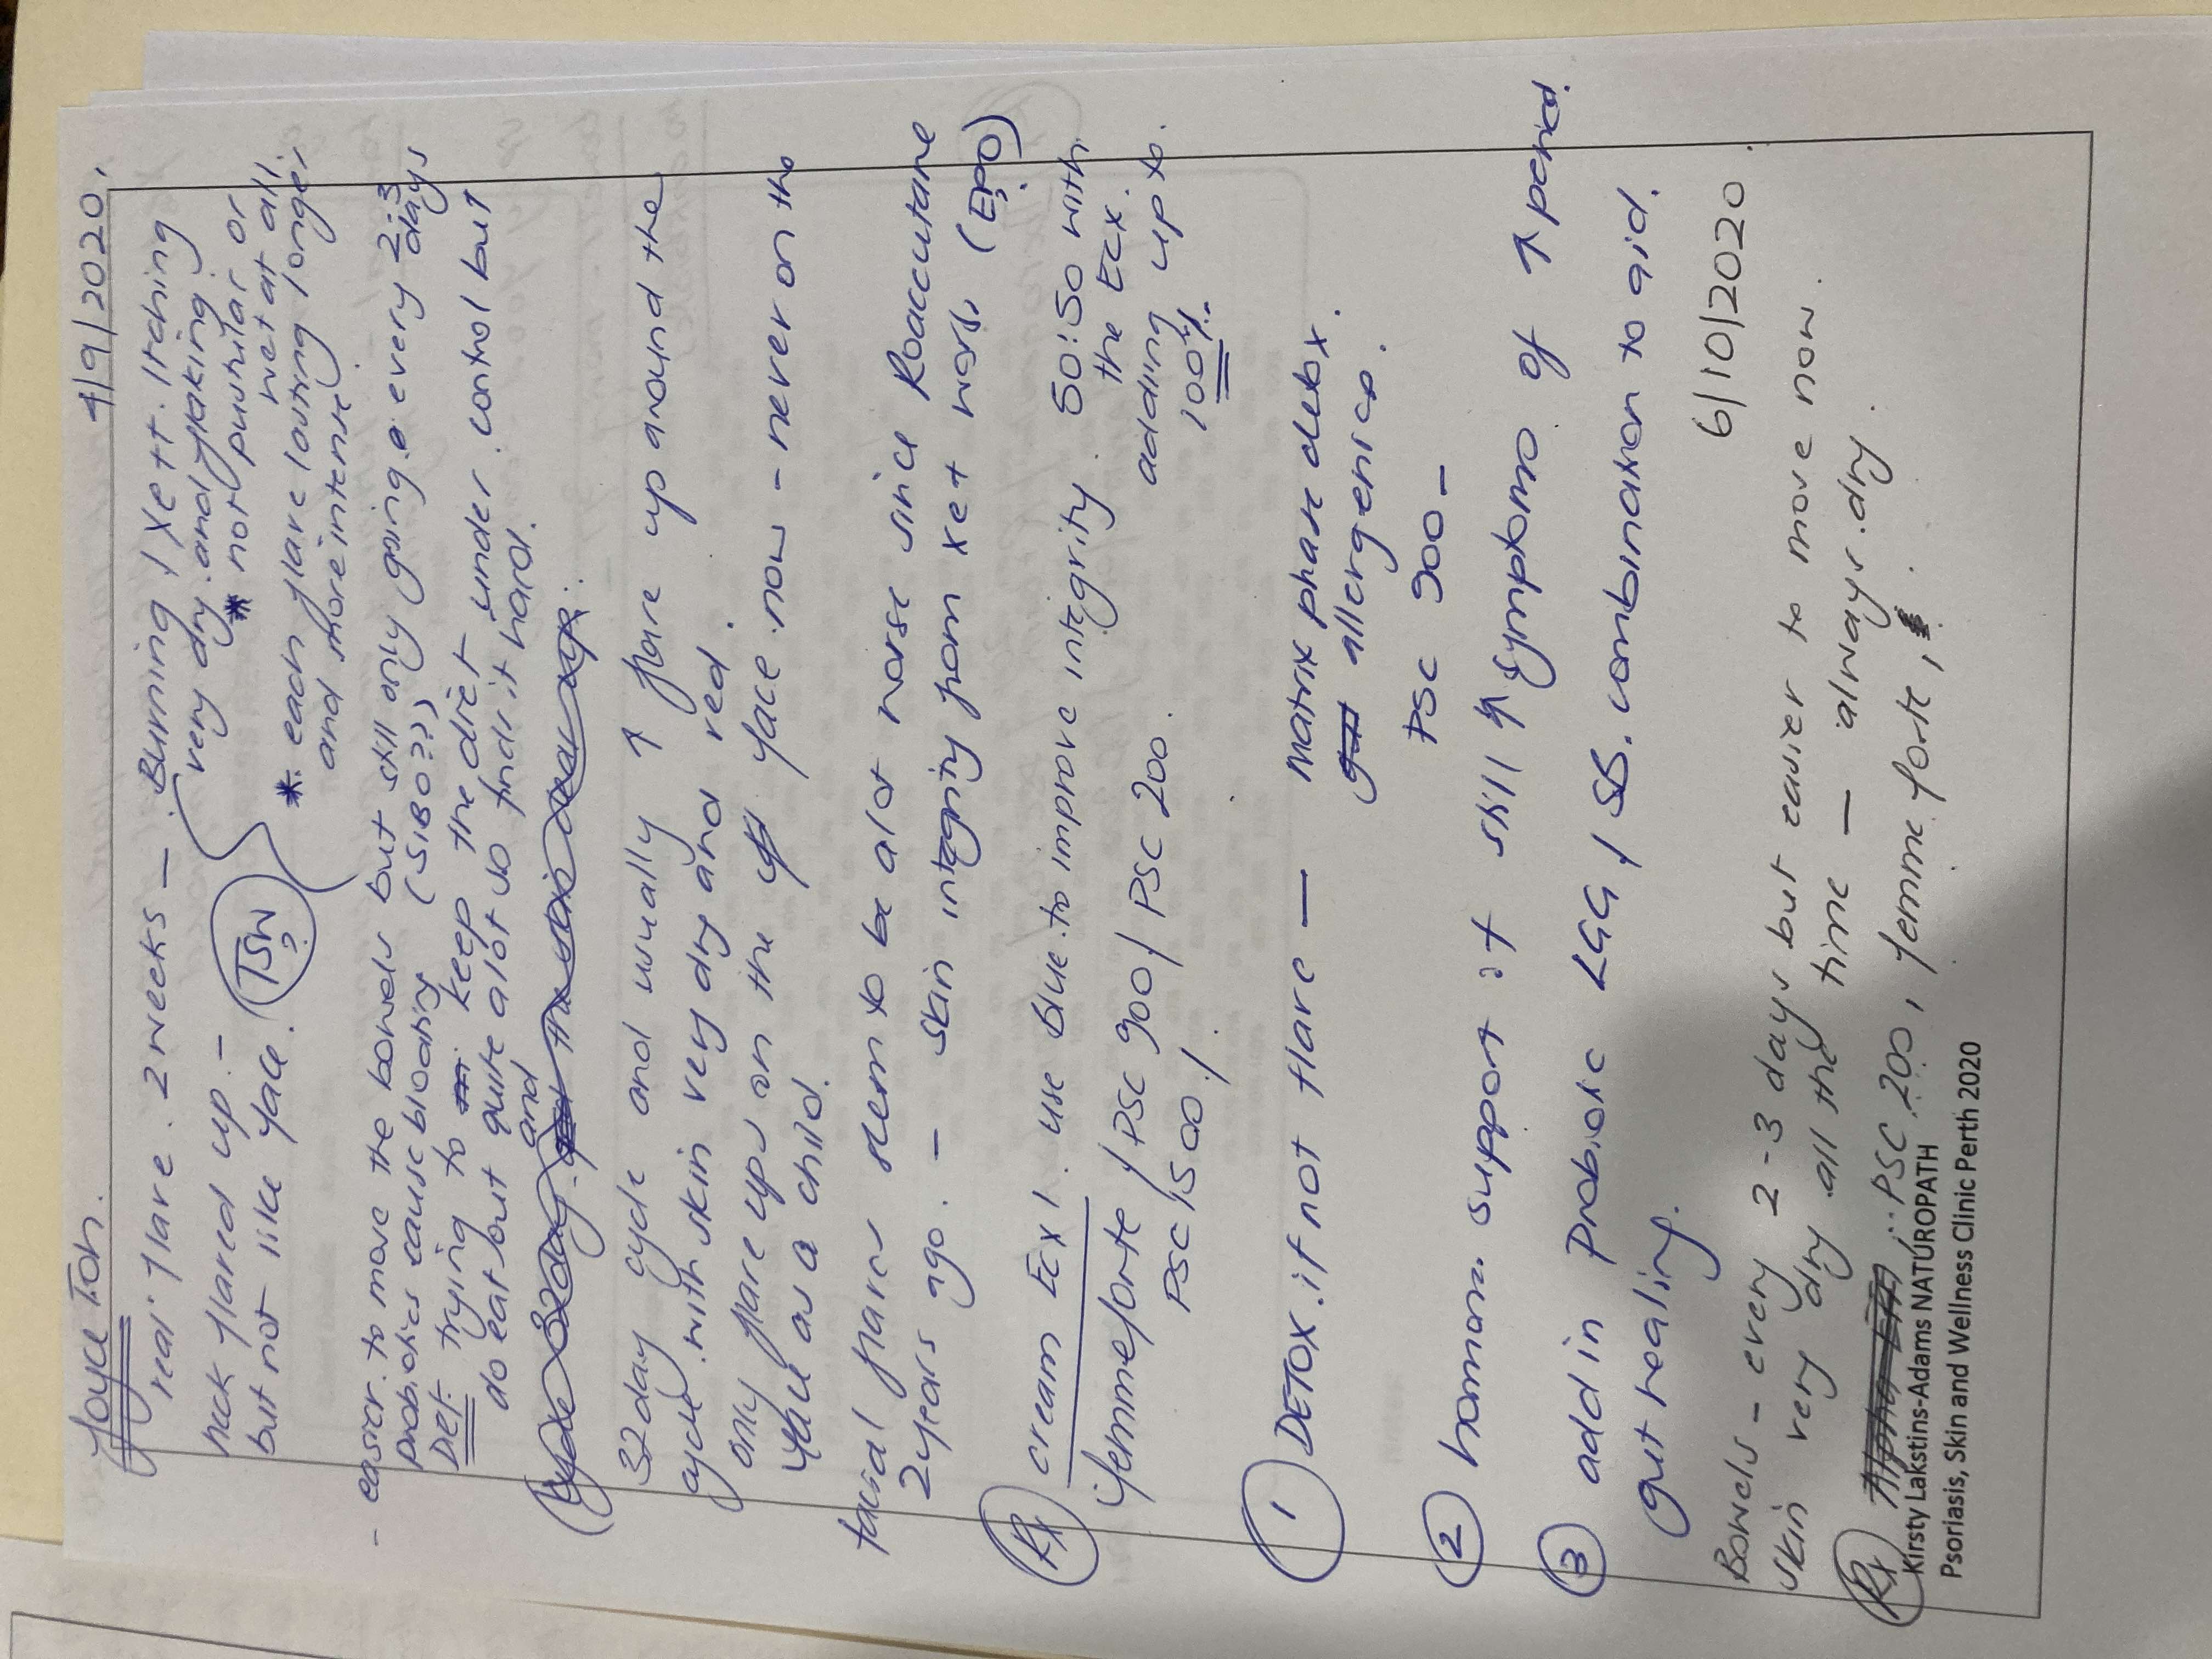 Joyce Toh. 4/9/2020.
real flare. 2 weeks — Burning / Xett. Itching
very dry and flaking
* not pustular or
wet at all.
neck flared up –
but not like face. TSW ?
* each flare lasting longer
and more intense
- easier to move the bowels but still only going every 2-3 days
probiotics cause bloating (SIBO??)
DET: trying to keep the diet under control but
do eat out quite a lot so finds it hard.
and
32 day cycle and usually ↑ flare up around the
cycle with skin very dry and red.
only flare ups on the face now – never on the
face as a child.
facial flares seem to be alot worse since Roaccutane
2 years ago. – skin integrity from xet worse (EPO)
?
Rx cream Ecx1. use blue to improve integrity 50:50 with
the Ecx.
adding up to
100%.
femmeforte / PSC 900 / PSC 200.
PSC 1500 /
1 DETOX. if not flare — matrix phase detox.
allergenics.
PSC 900 –
2 hormonal support if still ↑ symptoms of ↑ period.
3 add in Probiotic LGG / SB. combination to aid
gut healing.
6/10/2020.
Bowels – every 2-3 days but easier to move now.
skin very dry all the time — always dry.
Rx PSC 200, femme forte,
Kirsty Lakstins-Adams NATUROPATH
Psoriasis, Skin and Wellness Clinic Perth 2020